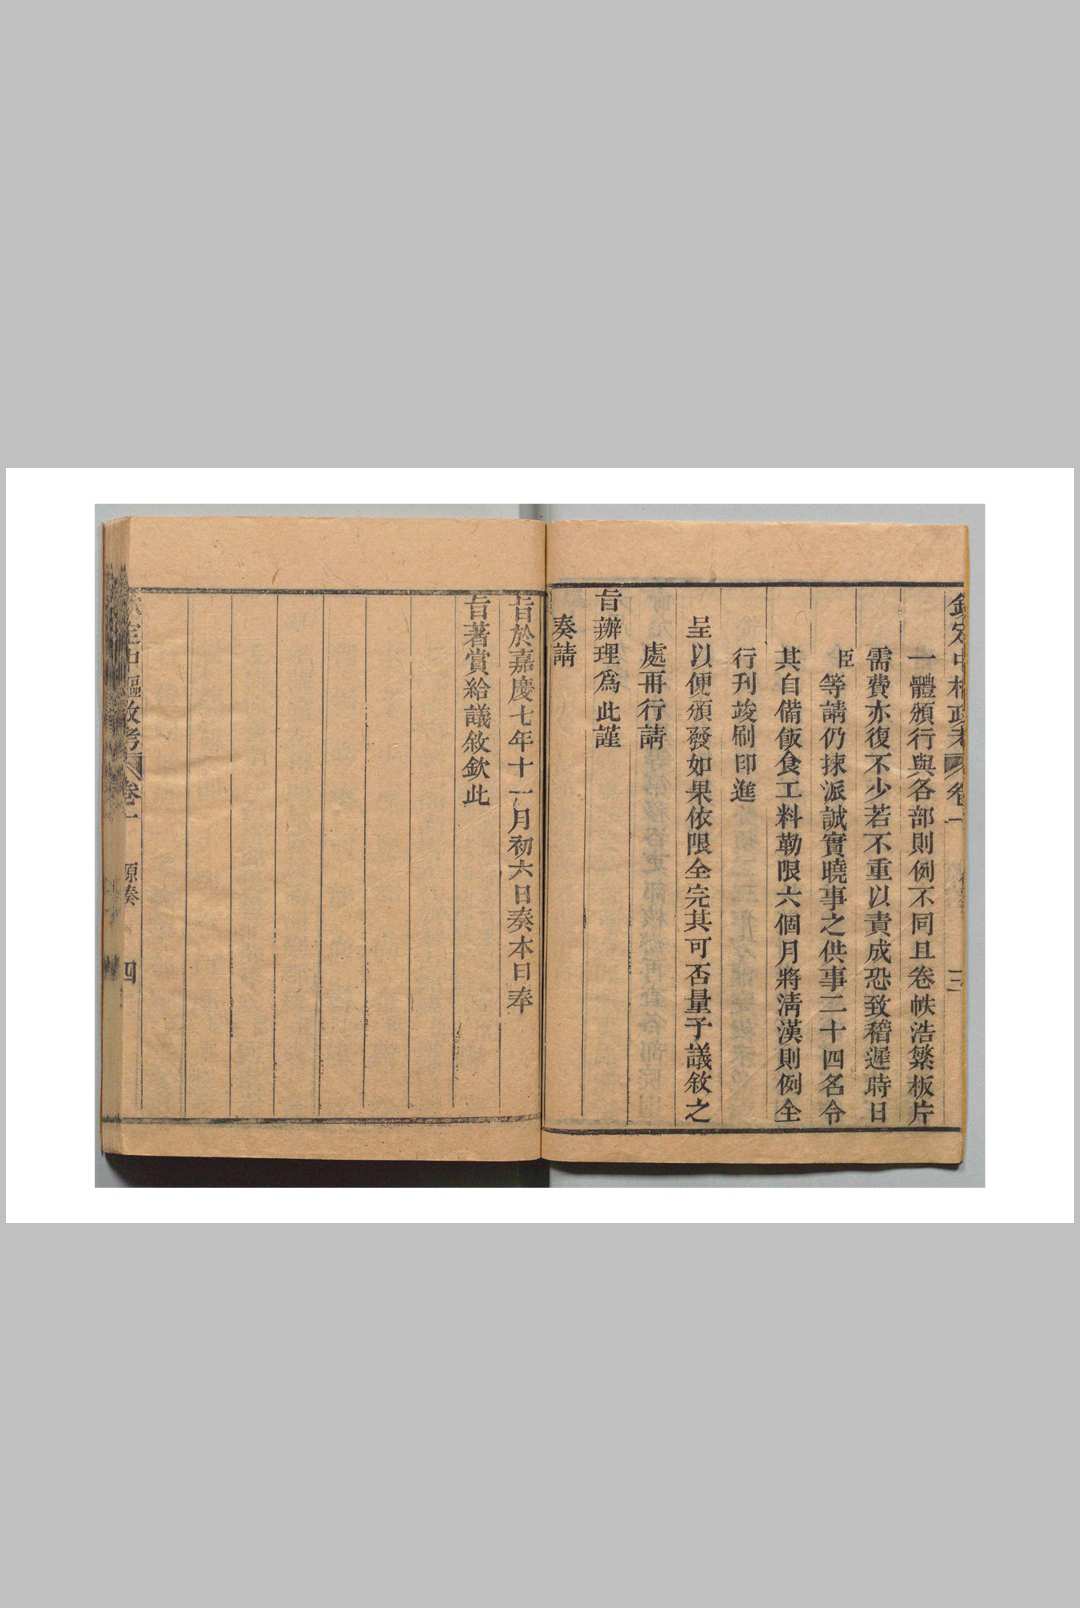 欽定中樞政考 卷一 三
一體頒行與各部則例不同且卷帙浩繁板片
需費亦復不少若不重以責成恐致稽遲時日
臣等請仍揀派誠實曉事之供事二十四名令
其自備飯食工料勒限六個月將清漢則例全
行刊竣刷印進
呈以便頒發如果依限全完其可否量予議敘之
處再行請
旨辦理爲此謹
奏請
旨於嘉慶七年十一月初六日奏本日奉
旨著賞給議敘欽此
欽定中樞政考 卷一 原奏 四